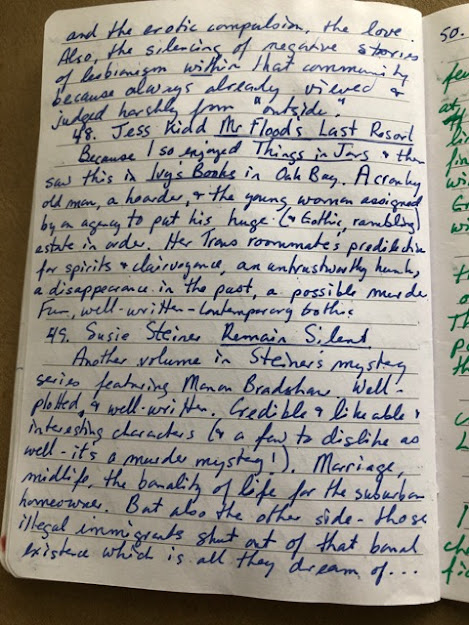 and the erotic compulsion, the love.
Also, the silencing of negative stories
of lesbianism within that community
because always already viewed &
judged harshly from "outside."
48. Jess Kidd Mr Flood's Last Resort
Because I so enjoyed Things in Jars & then
saw this in Ivy's Books in Oak Bay. A cranky
old man, a hoarder, & the young woman assigned
by an agency to put his huge (& Gothic, rambling)
estate in order. Her Trans roommate's predilection
for spirits & clairvoyance, an untrustworthy hunk,
a disappearance in the past, a possible murder
Fun, well-written-Contemporary Gothic
49. Susie Steiner Remain Silent
Another volume in Steiner's mystery
series featuring Manon Bradshaw. Well-
plotted, & well-written. Credible & likeable &
interesting characters (& a few to dislike as
well - it's a murder mystery!). Marriage,
midlife, the banality of life for the suburban
homeowner. But also the other side - those
illegal immigrants shut out of that banal
existence which is all they dream of...
50.